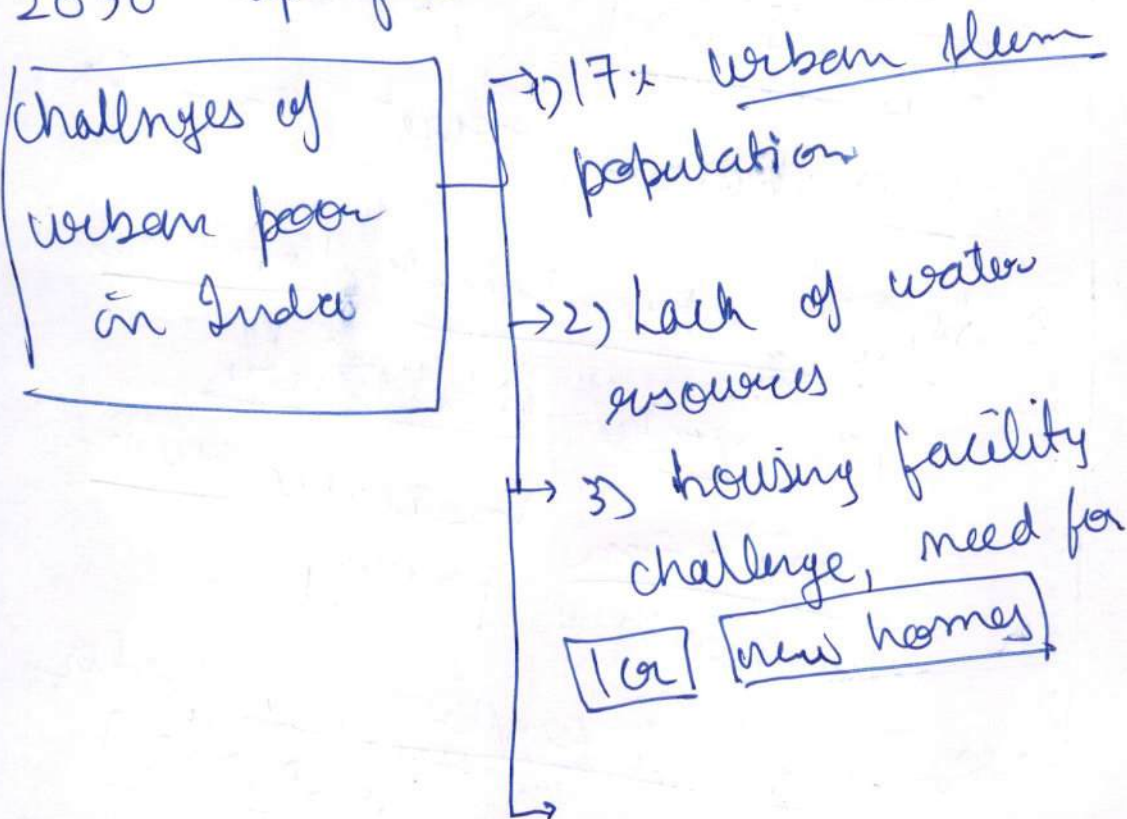 2030
challnges of
urban poor
in India
→1) 17% urban slum
population
→2) Lack of water
resources
→ 3) housing facility
challenge, need for
1 cr new homes
→